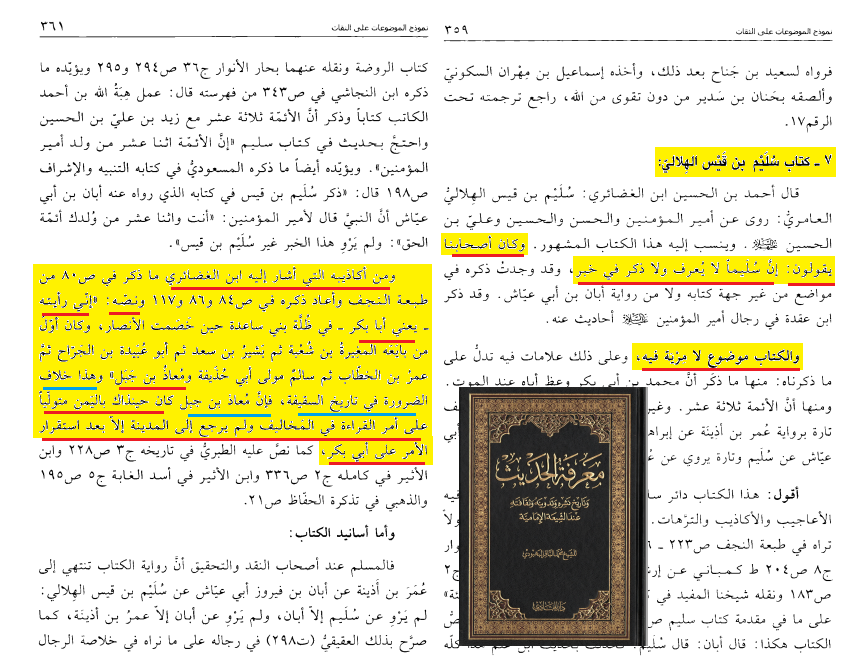 نموذج الموضوعات على الثقات
٣٥٩
فرواه لسعيد بن جَناح بعد ذلك، وأخذه إسماعيل بن مِهْران السكونيّ
وألصقه بحَنان بن سَدير من دون تقوى من الله، راجع ترجمته تحت
الرقم١٧.
٧ ـ كتاب سُلَيْم بن قَيْس الهِلاليّ:
قال أحمد بن الحسين ابن الغضائري: سُلَيْم بن قيس الهِلاليُّ
العامريُّ: روى عن أمير المؤمنين والحسن والحسين وعليّ بن
الحسين ﷺ. وينسب إليه هذا الكتاب المشهور. وكان أصحابنا
يقولون: إنَّ سُليماً لا يُعرف ولا ذكر في خبر، وقد وجدتُ ذكره في
مواضع من غير جهة كتابه ولا من رواية أبان بن أبي عيّاش. وقد ذكر
ابن عقدة في رجال أمير المؤمنين أحاديث عنه.
والكتاب موضوع لا مرّية فيه، وعلى ذلك علامات فيه تدلُّ على
ما ذكرناه: منها ما ذكَر أنَّ محمد بن أبي بكر وعظ أباه عند الموت.
ومنها أنَّ الأئمة ثلاثة عشر. وغير
تارة برواية عُمر بن أذينَة عن إبراه
عيّاش عن سُلَيم وتارة يروي عن
أقول: هذا الكتاب دائر
الأعاجيب والأكاذيب والترّهات.
تراه في طبعة النجف ص٢٢٣ ـ
ج٨ ص٢٠٤ ط كمباني عن
ص١٨٣ ونقله شيخنا المفيد في
على ما في مقدمة كتاب سليم
الكتاب هكذا: قال أبان: قال سُلَيم:
معرفة الحديث
وتاريخ نشره وتدوينه وثقافته
عند الشيعة الإمامية
نموذج الموضوعات على الثقات
٣٦١
كتاب الروضة ونقله عنهما بحار الأنوار ج٣٦ ص٢٩٤ و٢٩٥ ويؤيّده ما
ذكره ابن النجاشي في ص٣٤٣ من فهرسته قال: عمل هِبَةُ الله بن أحمد
الكاتب كتاباً وذكر أنَّ الأئمّة ثلاثة عشر مع زيد بن عليّ بن الحسين
واحتجَّ بحديث في كتاب سليم «إنَّ الأئمّة اثنا عشر من ولد أمير
المؤمنين». ويؤيّده أيضاً ما ذكره المسعوديُّ في كتابه التنبيه والإشراف
ص١٩٨ قال: «ذكر سُلَيم بن قيس في كتابه الذي رواه عنه أبان بن أبي
عيّاش أنَّ النبيَّ قال لأمير المؤمنين: «أنت واثنا عشر من وُلدك أئمّة
الحق»: ولم يَرْوِ هذا الخبر غير سُلَيْم بن قيس».
ومن أكاذيبه التي أشار إليه ابن الغضائري ما ذكر في ص٨٠ من
طبعـة النجـف وأعـاد ذكـره في ص٨٤ و٨٦ و١١٧ ونصّه: «إنّي رأيته
ـ يعني أبا بكر ـ في ظُلَّة بني ساعدة حين خَصَمت الأنصار، وكان أوّلُ
من بايَعَه المغيرةُ بن شُعْبة ثم بَشيرُ بن سعد ثم أبو عُبَيدة بن الجَرّاح ثمَّ
عمرُ بن الخطّاب ثم سالمٌ مولى أبي حُذَيفة ومُعاذُ بن جَبَل» وهذا خلاف
الضرورة في تاريخ السقيفة، فإنَّ مُعاذ بن جبل كان حينذاك باليَمن متولّياً
على أمر القراءة في المَخاليف ولم يرجع إلى المدينة إلاّ بعد استقرار
الأمر على أبي بكر، كما نصَّ عليه الطبريُّ في تاريخه ج٣ ص٢٢٨ وابن
الأثير في كامله ج٢ ص٣٣٦ وابن الأثير في أسد الغابة ج٥ ص١٩٥
والذهبي في تذكرة الحفّاظ ص٢١.
وأما أسانيد الكتاب:
فالمسلم عند أصحاب النقد والتحقيق أنَّ رواية الكتاب تنتهي إلى
عُمَرَ بن أذينة عن أبان بن فيروز أبي عيّاش عن سُلَيْم بن قيس الهِلالي:
لم يَرْوِ عن سُلَيم إلاّ أبان، ولم يَرْوِ عن أبان إلاّ عمرُ بن أذينَة، كمـا
صرَّح بذلك العقيقيُّ (ت٢٩٨) في رجاله على ما نراه في خلاصة الرجال